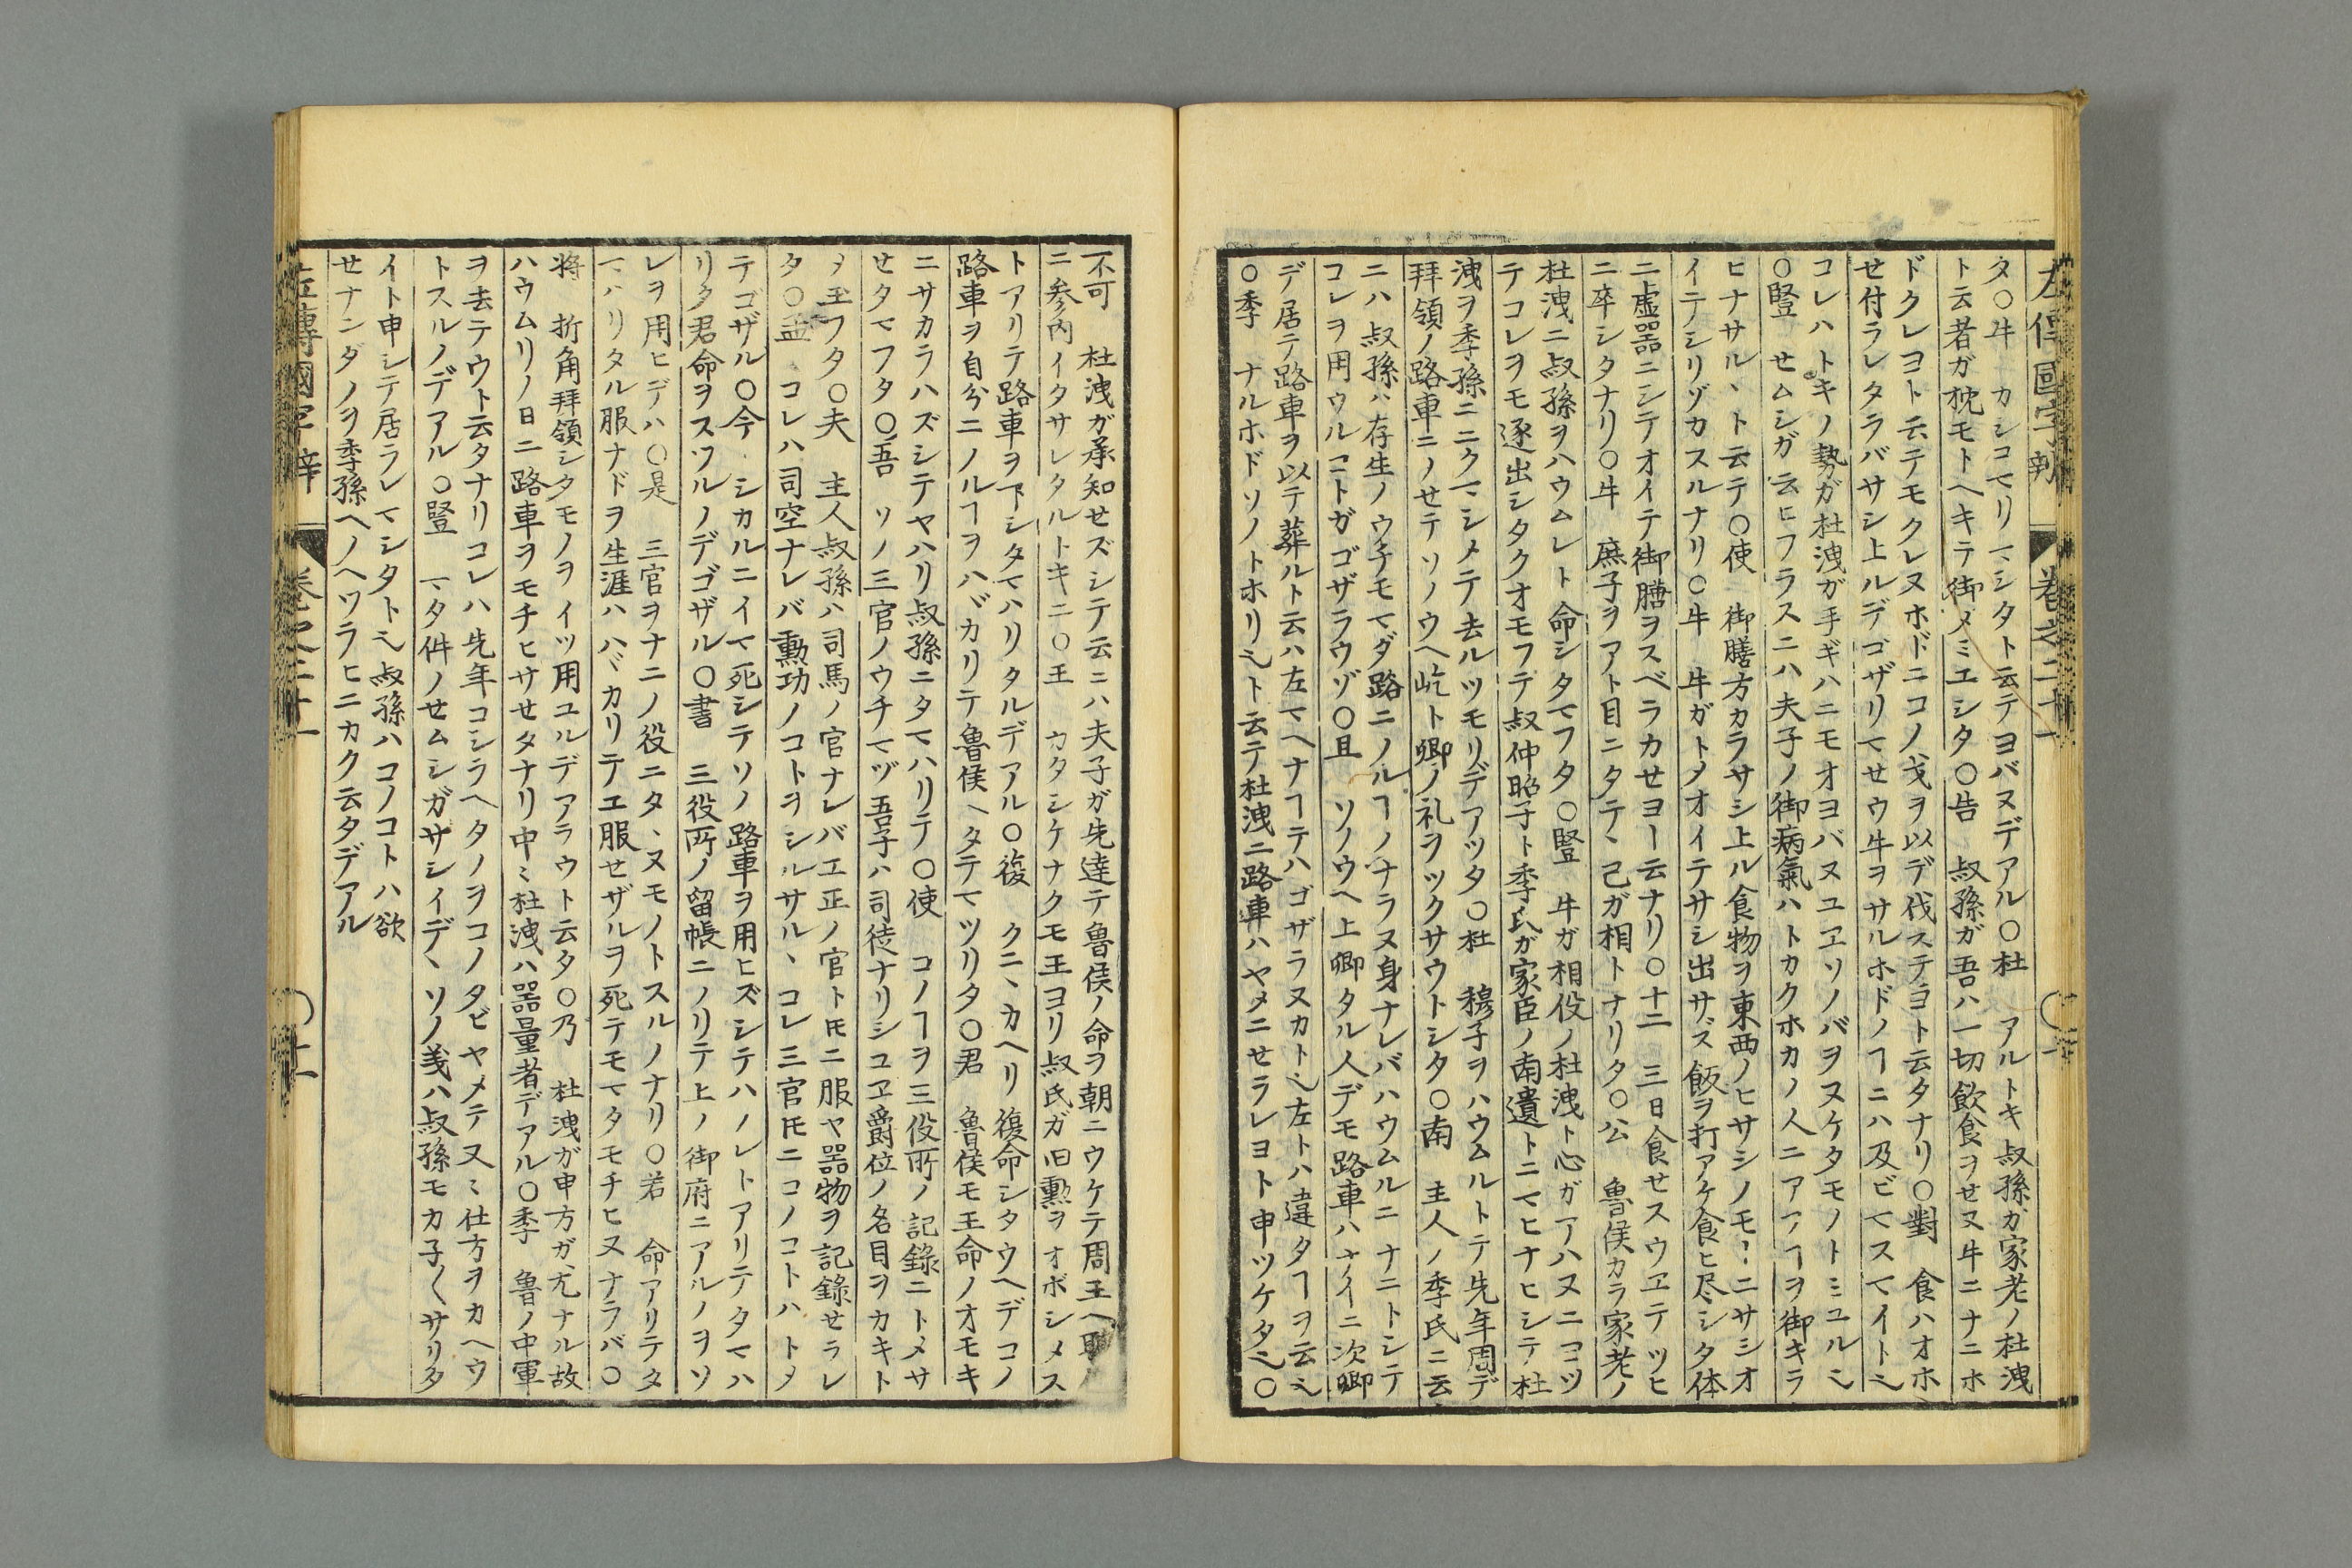 左傳國字辯 卷之二十一 〇一
タ〇牛 カシコマリマシタト云テヨバヌデアル〇杜 アルトキ叔孫ガ家老ノ杜洩
ト云者ガ枕モトヘキテ御メミエシタ〇告 叔孫ガ吾ハ一切飲食ヲせヌ牛ニナニホ
ドクレヨト云テモクレヌホドニコノ戈ヲ以デ伐ステヨト云タナリ〇對 食ハオホ
せ付ラレタラバサシ上ルデゴザリマせウ牛ヲサルホドノヿニハ及ビマスマイトミ
コレハトキノ勢ガ杜洩ガ手ギハニモオヨバヌユヱソノバヲヌケタモノトミユルミ
〇豎 せムシガ云ヒフラスニハ夫子ノ御病氣ハトカクホカノ人ニアフヿヲ御キラ
ヒナサルヽト云テ〇使 御膳方カラサシ上ル食物ヲ東西ノヒサシノモーニサシオ
イテシリゾカスルナリ〇牛 牛ガトメオイテサシ出サズ飯ヲ打アケ食ヒ尽シタ体
ニ虚器ニシテオイテ御膳ヲスベラカせヨー云ナリ〇十二 三日食せスウヱテツヒ
ニ卒シタナリ〇牛 庶子ヲアト目ニタテヽ己ガ相トナリタ〇公 魯侯カラ家老ノ
杜洩ニ叔孫ヲハウムレト命シタマフタ〇豎 牛ガ相役ノ杜洩ト心ガアハヌニヿツ
テコレヲモ逐出シタクオモフテ叔仲昭子ト季氏ガ家臣ノ南遺トニマヒナヒシテ杜
洩ヲ季孫ニニクマシメテ去ルツモリデアツタ〇杜 穆子ヲハウムルトテ先年周デ
拜領ノ路車ニノせテソノウヘ屹ト卿ノ礼ヲツクサウトシタ〇南 主人ノ季氏ニ云
ニハ叔孫ハ存生ノウチモマダ路ニノルヿノナラヌ身ナレバハウムルニナニトシテ
コレヲ用ウルヿトガゴザラウゾ〇且 ソノウヘ上卿タル人デモ路車ハナイニ次卿
デ居テ路車ヲ以テ葬ルト云ハ左マヘナヿテハゴザラヌカトミ左トハ違タヿヲ云ミ
〇季 ナルホドソノトホリミト云テ杜洩ニ路車ハヤメニせラレヨト申ツケタミ〇
不可 杜洩ガ承知せズシテ云ニハ夫子ガ先達テ魯侯ノ命ヲ朝ニウケテ周王ヘ聘
ニ參內イタサレタルトキニ〇王 カタシケナクモ王ヨリ叔氏ガ旧勲ヲオボシメス
トアリテ路車ヲ下シタマハリタルデアル〇復 クニヽカヘリ復命シタウヘデコノ
路車ヲ自分ニノルヿヲハヾカリテ魯侯ヘタテマツリタ〇君 魯侯モ王命ノオモキ
ニサカラハズシテヤハリ叔孫ニタマハリテ〇使 コノヿヲ三役所ノ記錄ニトメサ
せタマフタ〇吾 ソノ三官ノウチマヅ吾子ハ司徒ナリシユヱ爵位ノ名目ヲカキト
メ玉フタ〇夫 主人叔孫ハ司馬ノ官ナレバ工正ノ官トモニ服ヤ器物ヲ記錄せラレ
タ〇孟 コレハ司空ナレバ勲功ノコトヲシルサルヽコレ三官トモニコノコトハトメ
テゴザル〇今 シカルニイマ死シテソノ路車ヲ用ヒズシテハノレトアリテタマハ
リタ君命ヲスツルノデゴザル〇書 三役所ノ留帳ニノリテ上ノ御府ニアルノヲソ
レヲ用ヒデハ〇是 三官ヲナニノ役ニタヽヌモノトスルノナリ〇若 命アリテタ
マハリタル服ナドヲ生涯ハハヾカリテエ服せザルヲ死テモマタモチヒヌナラバ〇
將 折角拜領シタモノヲイツ用ユルデアラウト云タ〇乃 杜洩ガ申方ガ尤ナル故
ハウムリノ日ニ路車ヲモチヒサせタナリ中ミ杜洩ハ器量者デアル〇季 魯ノ中軍
ヲ去テウト云タナリコレハ先年コシラヘタノヲコノタビヤメテ又ミ仕方ヲカヘウ
トスルノデアル〇豎 マタ件ノせムシガサシイデヽソノ義ハ叔孫モカ子〱サリタ
イト申シテ居ラレマシタトミ叔孫ハコノコトハ欲
せナンダノヲ季孫ヘノヘツラヒニカク云タデアル
左傳國字辯 卷之二十一 〇二